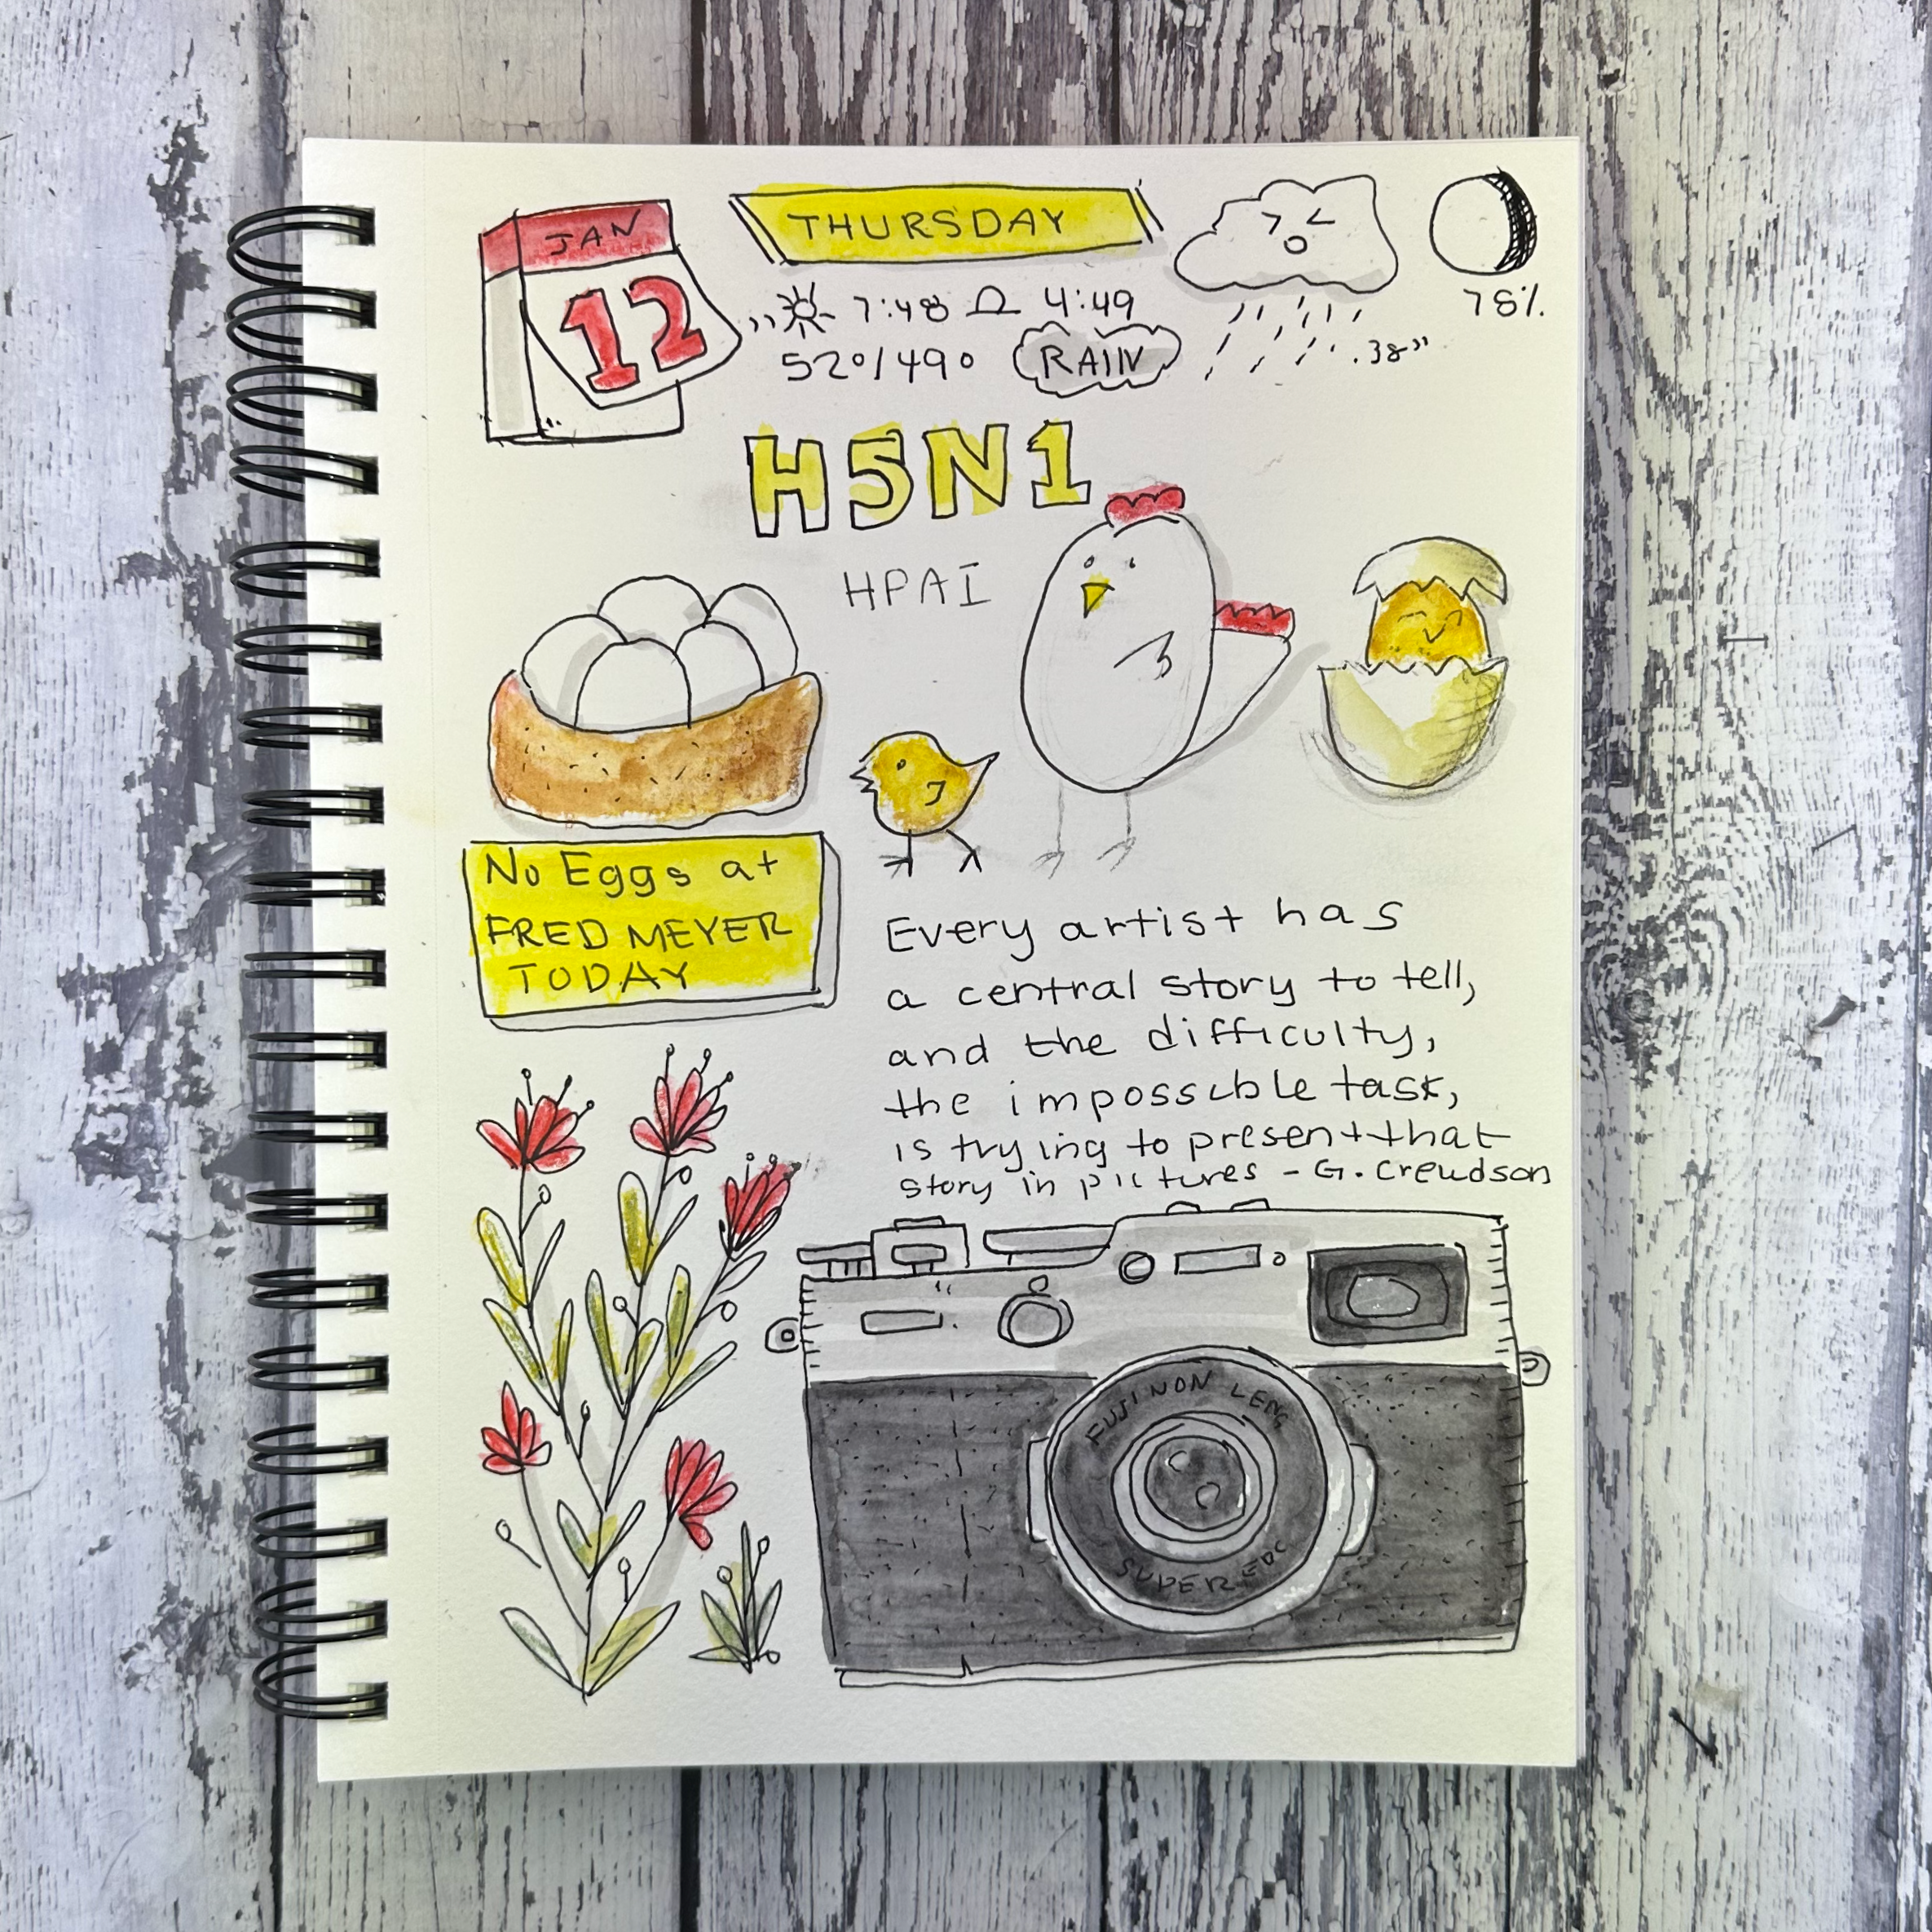 JAN
12
THURSDAY
7:48 4:49
52°/49° RAIN
.38"
78%
H5N1
HPAI
No Eggs at
FRED MEYER
TODAY
Every artist has
a central story to tell,
and the difficulty,
the impossible task,
is trying to present that
story in pictures - G. Crewdson
FUJINON LENS
SUPER EBC